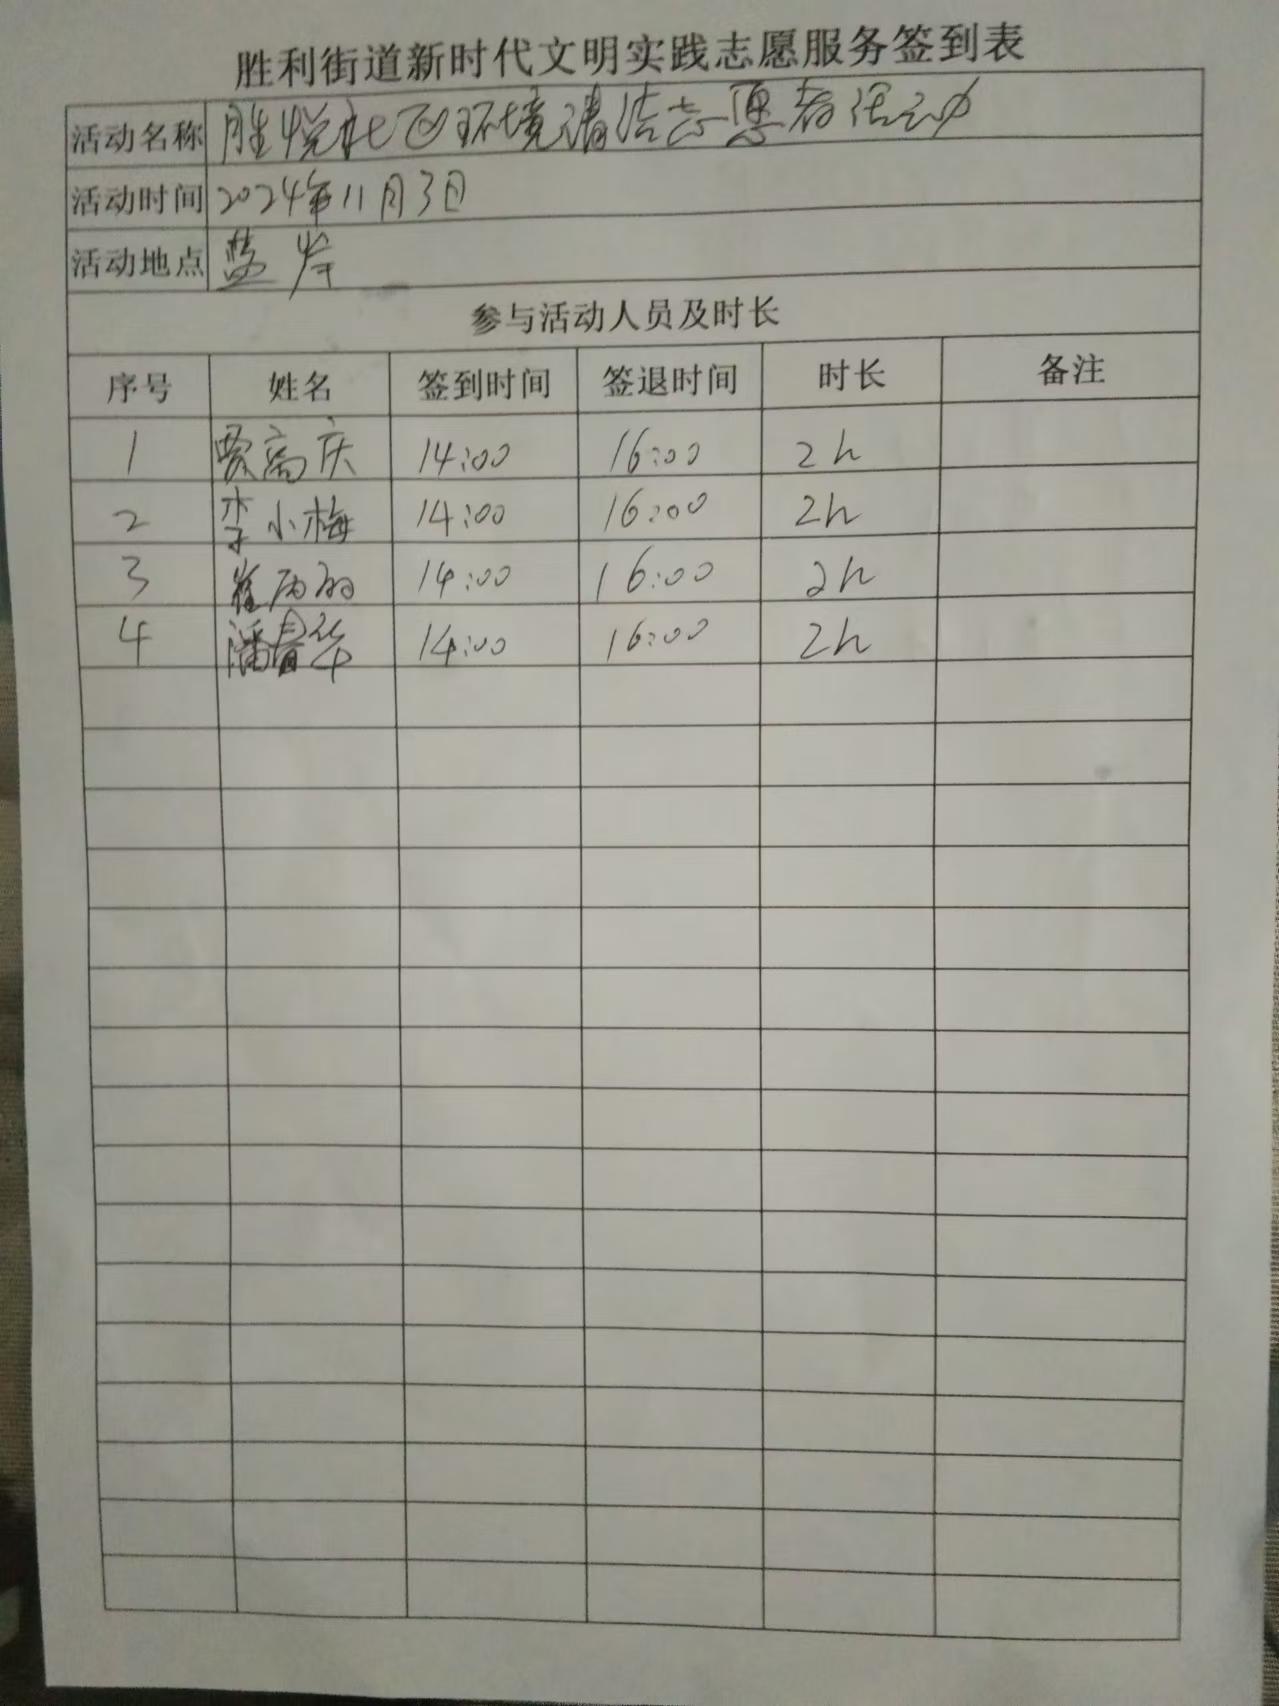 胜利街道新时代文明实践志愿服务签到表
活动名称 胜悦社区环境清洁志愿者活动
活动时间 2024年11月3日
活动地点 蓝岸
参与活动人员及时长
序号 姓名 签到时间 签退时间 时长 备注
1 贾高庆 14:00 16:00 2h
2 李小梅 14:00 16:00 2h
3 崔丙 14:00 16:00 2h
4 潘春华 14:00 16:00 2h